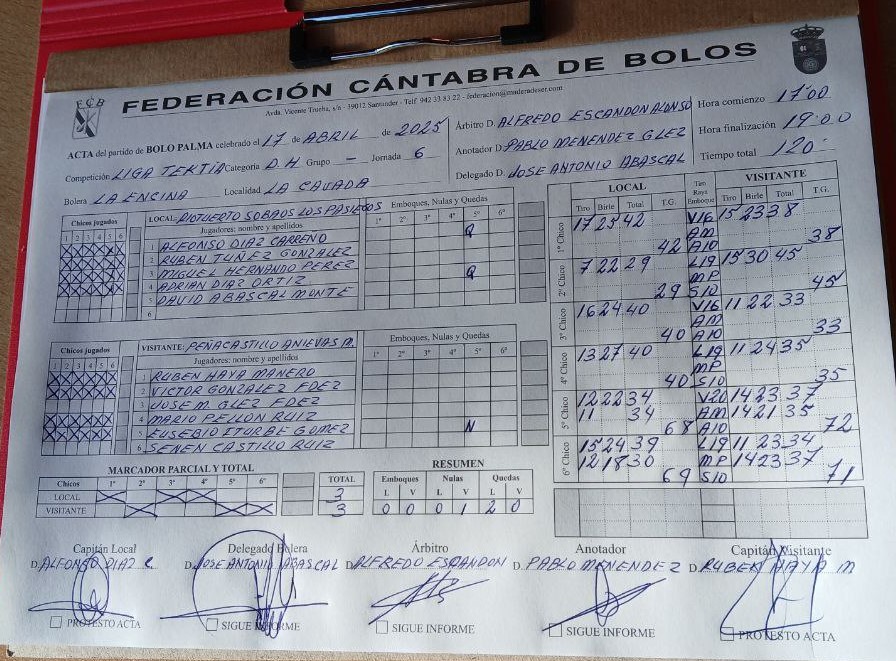 FEDERACIÓN CÁNTABRA DE BOLOS
F C B
Avda. Vicente Trueba, s/n - 39012 Santander - Telf. 942 33 83 22 - federacion@maderadeser.com
ACTA del partido de BOLO PALMA celebrado el 17 de ABRIL de 2025
Competición LIGA TEKTIA Categoría D.H Grupo - Jornada 6
Bolera LA ENCINA Localidad LA CAVADA
Árbitro D. ALFREDO ESCANDON ALONSO
Anotador D. PABLO MENENDEZ GLEZ
Delegado D. JOSE ANTONIO ABASCAL
Hora comienzo 17:00
Hora finalización 19:00
Tiempo total 120'
Chicos jugados
1 2 3 4 5 6
LOCAL: RIOTUERTO SOBAOS LOS PASIEGOS
Jugadores: nombre y apellidos
Emboques, Nulas y Quedas
1º 2º 3º 4º 5º 6º
1 ALFONSO DIAZ CARREÑO Q
2 RUBEN TUÑEZ GONZALEZ
3 MIGUEL HERNANDO PEREZ Q
4 ADRIAN DIAZ ORTIZ
5 DAVID ABASCAL MONTE
6
Chicos jugados
1 2 3 4 5 6
VISITANTE: PEÑACASTILLO ANIEVAS M.
Jugadores: nombre y apellidos
Emboques, Nulas y Quedas
1º 2º 3º 4º 5º 6º
1 RUBEN HAYA MANERO
2 VICTOR GONZALEZ FDEZ
3 JOSE M. GLEZ FDEZ
4 MARIO PELLON RUIZ
5 EUSEBIO ITURBE GOMEZ N
6 SENEN CASTILLO RUIZ
LOCAL Tiro Raya Emboque VISITANTE
Tiro Birle Total T.G. Tiro Birle Total T.G.
1º Chico 17 25 42 V16 15 23 38
AM
42 A10 38
2º Chico 7 22 29 L19 15 30 45
MP
29 S10 45
3º Chico 16 24 40 V16 11 22 33
AM
40 A10 33
4º Chico 13 27 40 L19 11 24 35
MP
40 S10 35
5º Chico 12 22 34 V20 14 23 37
11 34 AM 14 21 35
68 A10 72
6º Chico 15 24 39 L19 11 23 34
12 18 30 MP 14 23 37
69 S10 71
MARCADOR PARCIAL Y TOTAL
Chicos 1º 2º 3º 4º 5º 6º TOTAL
LOCAL 3
VISITANTE 3
RESUMEN
Emboques Nulas Quedas
L V L V L V
0 0 0 1 2 0
Capitán Local Delegado Bolera Árbitro Anotador Capitán Visitante
D. ALFONSO DIAZ C D. JOSE ANTONIO ABASCAL D. ALFREDO ESCANDON D. PABLO MENENDEZ D. RUBEN HAYA M
PROTESTO ACTA SIGUE INFORME SIGUE INFORME SIGUE INFORME PROTESTO ACTA